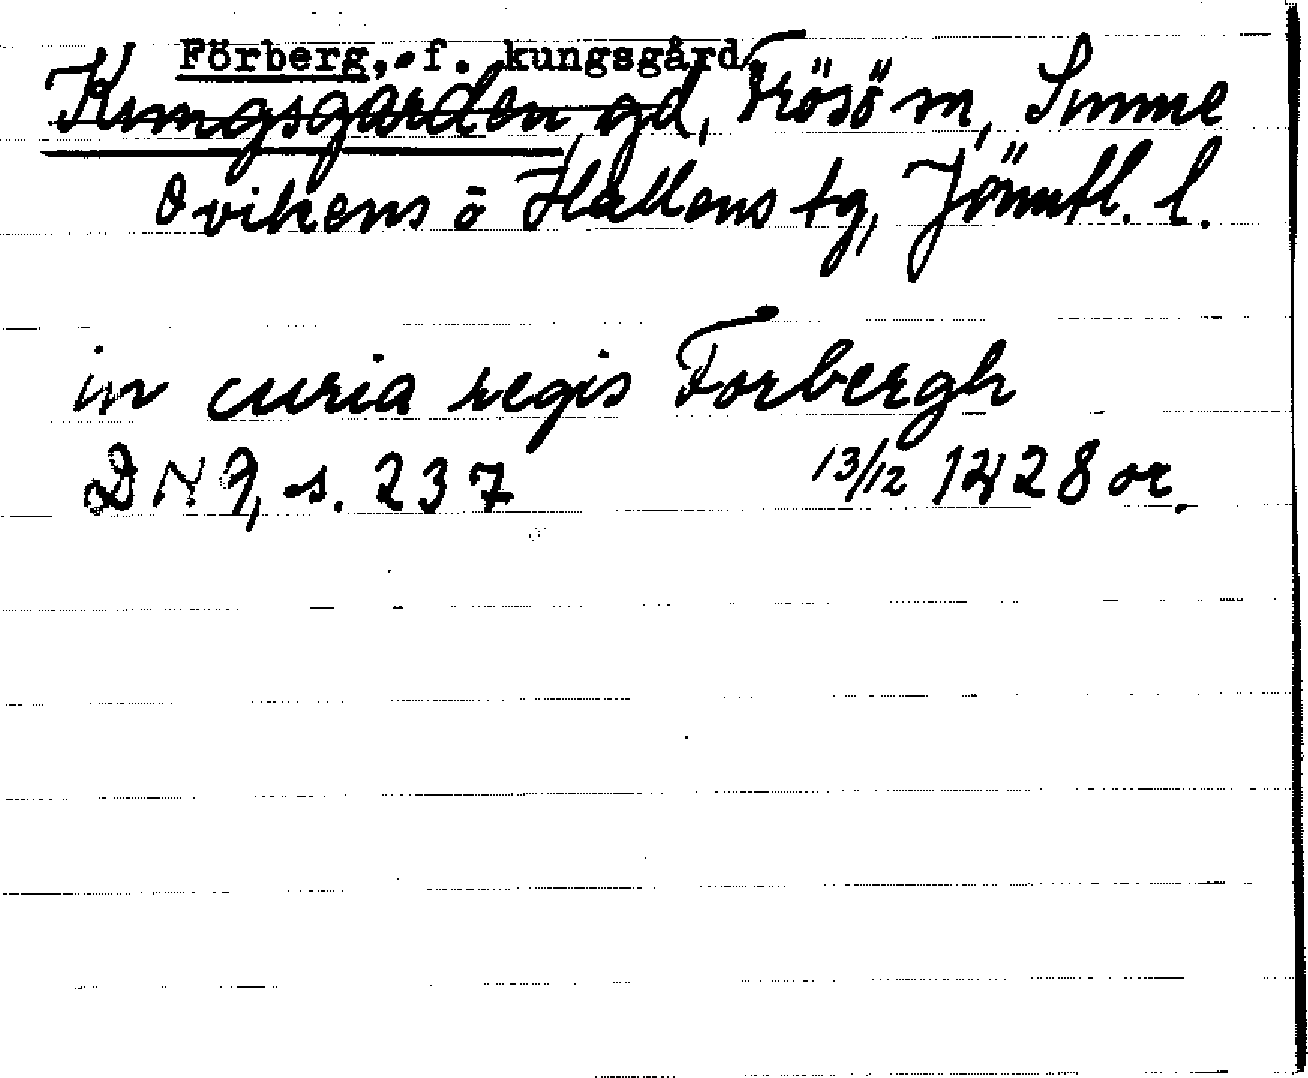 Förberg, f. kungsgård
Kungsgården, gd, Frösö sn, Sunne
Ovikens o Hallens tg, Jämtl. l.
in curia regis Forbergh
DN 9, s. 237 13/12 1428 or.